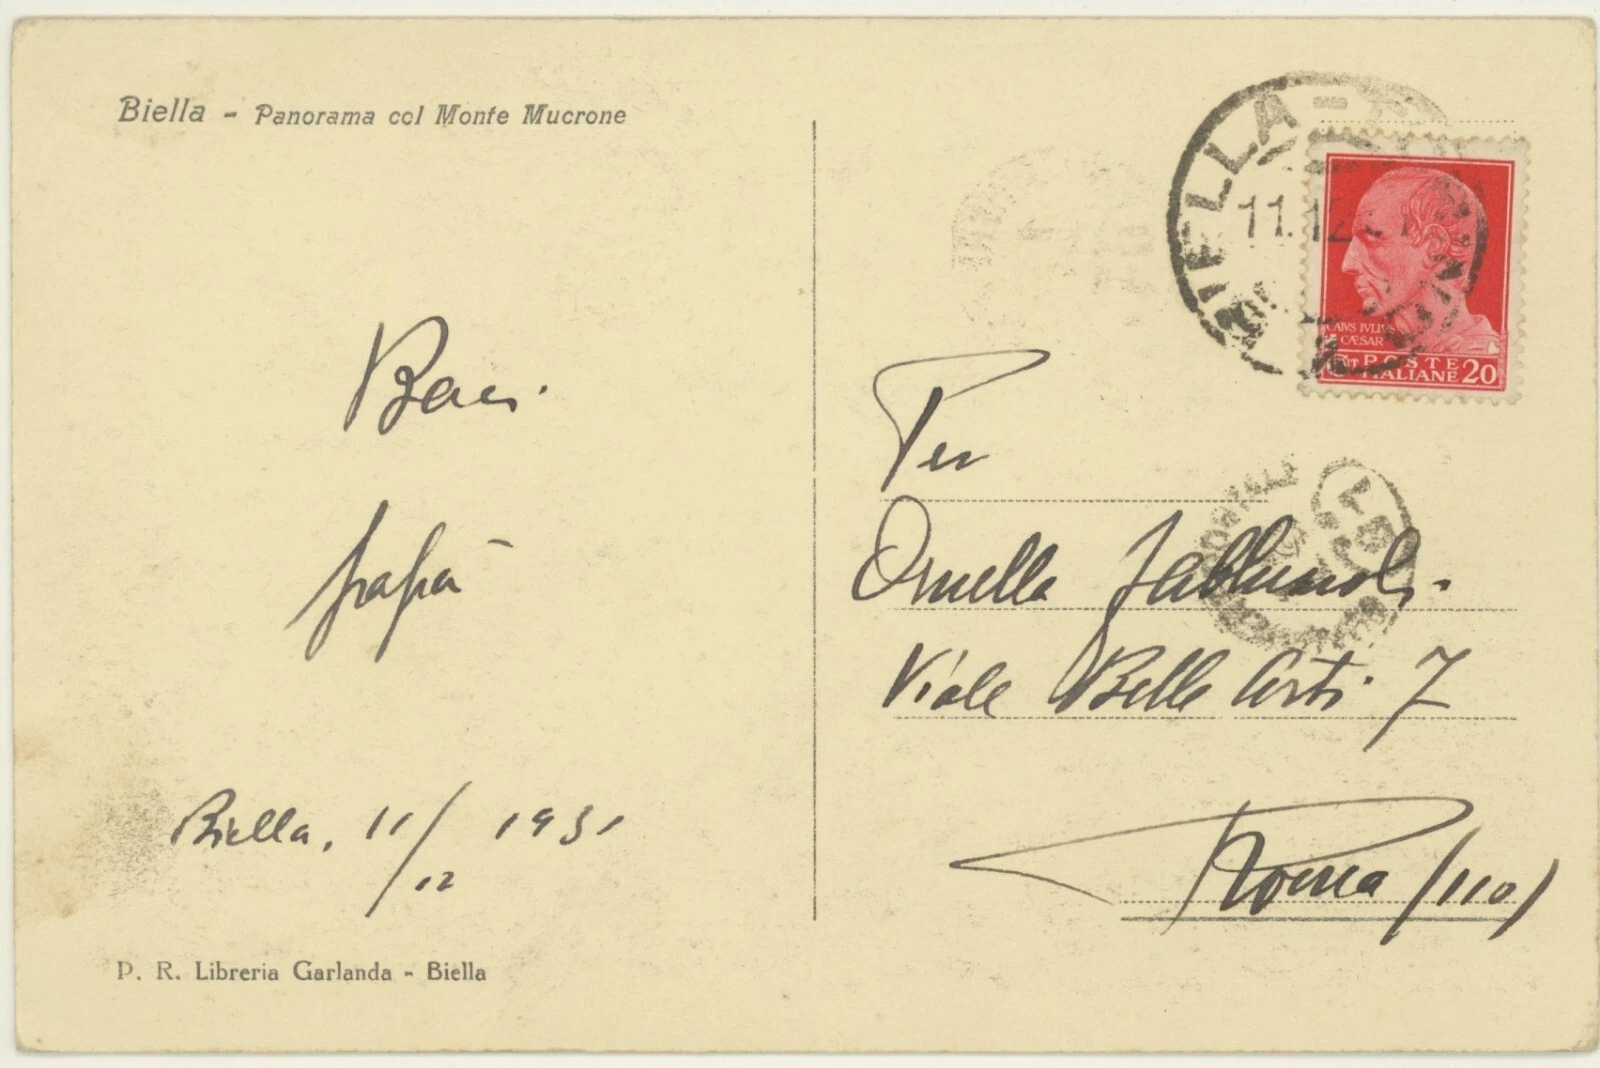 Biella - Panorama col Monte Mucrone
BIELLA
11.12
CAIVS IVLIVS
CÆSAR
POSTE
ITALIANE 20
Baci.
papà
Biella, 11/12 1931
P. R. Libreria Garlanda - Biella
Per
Ornella
Viale Belle Arti 7
Roma (110)